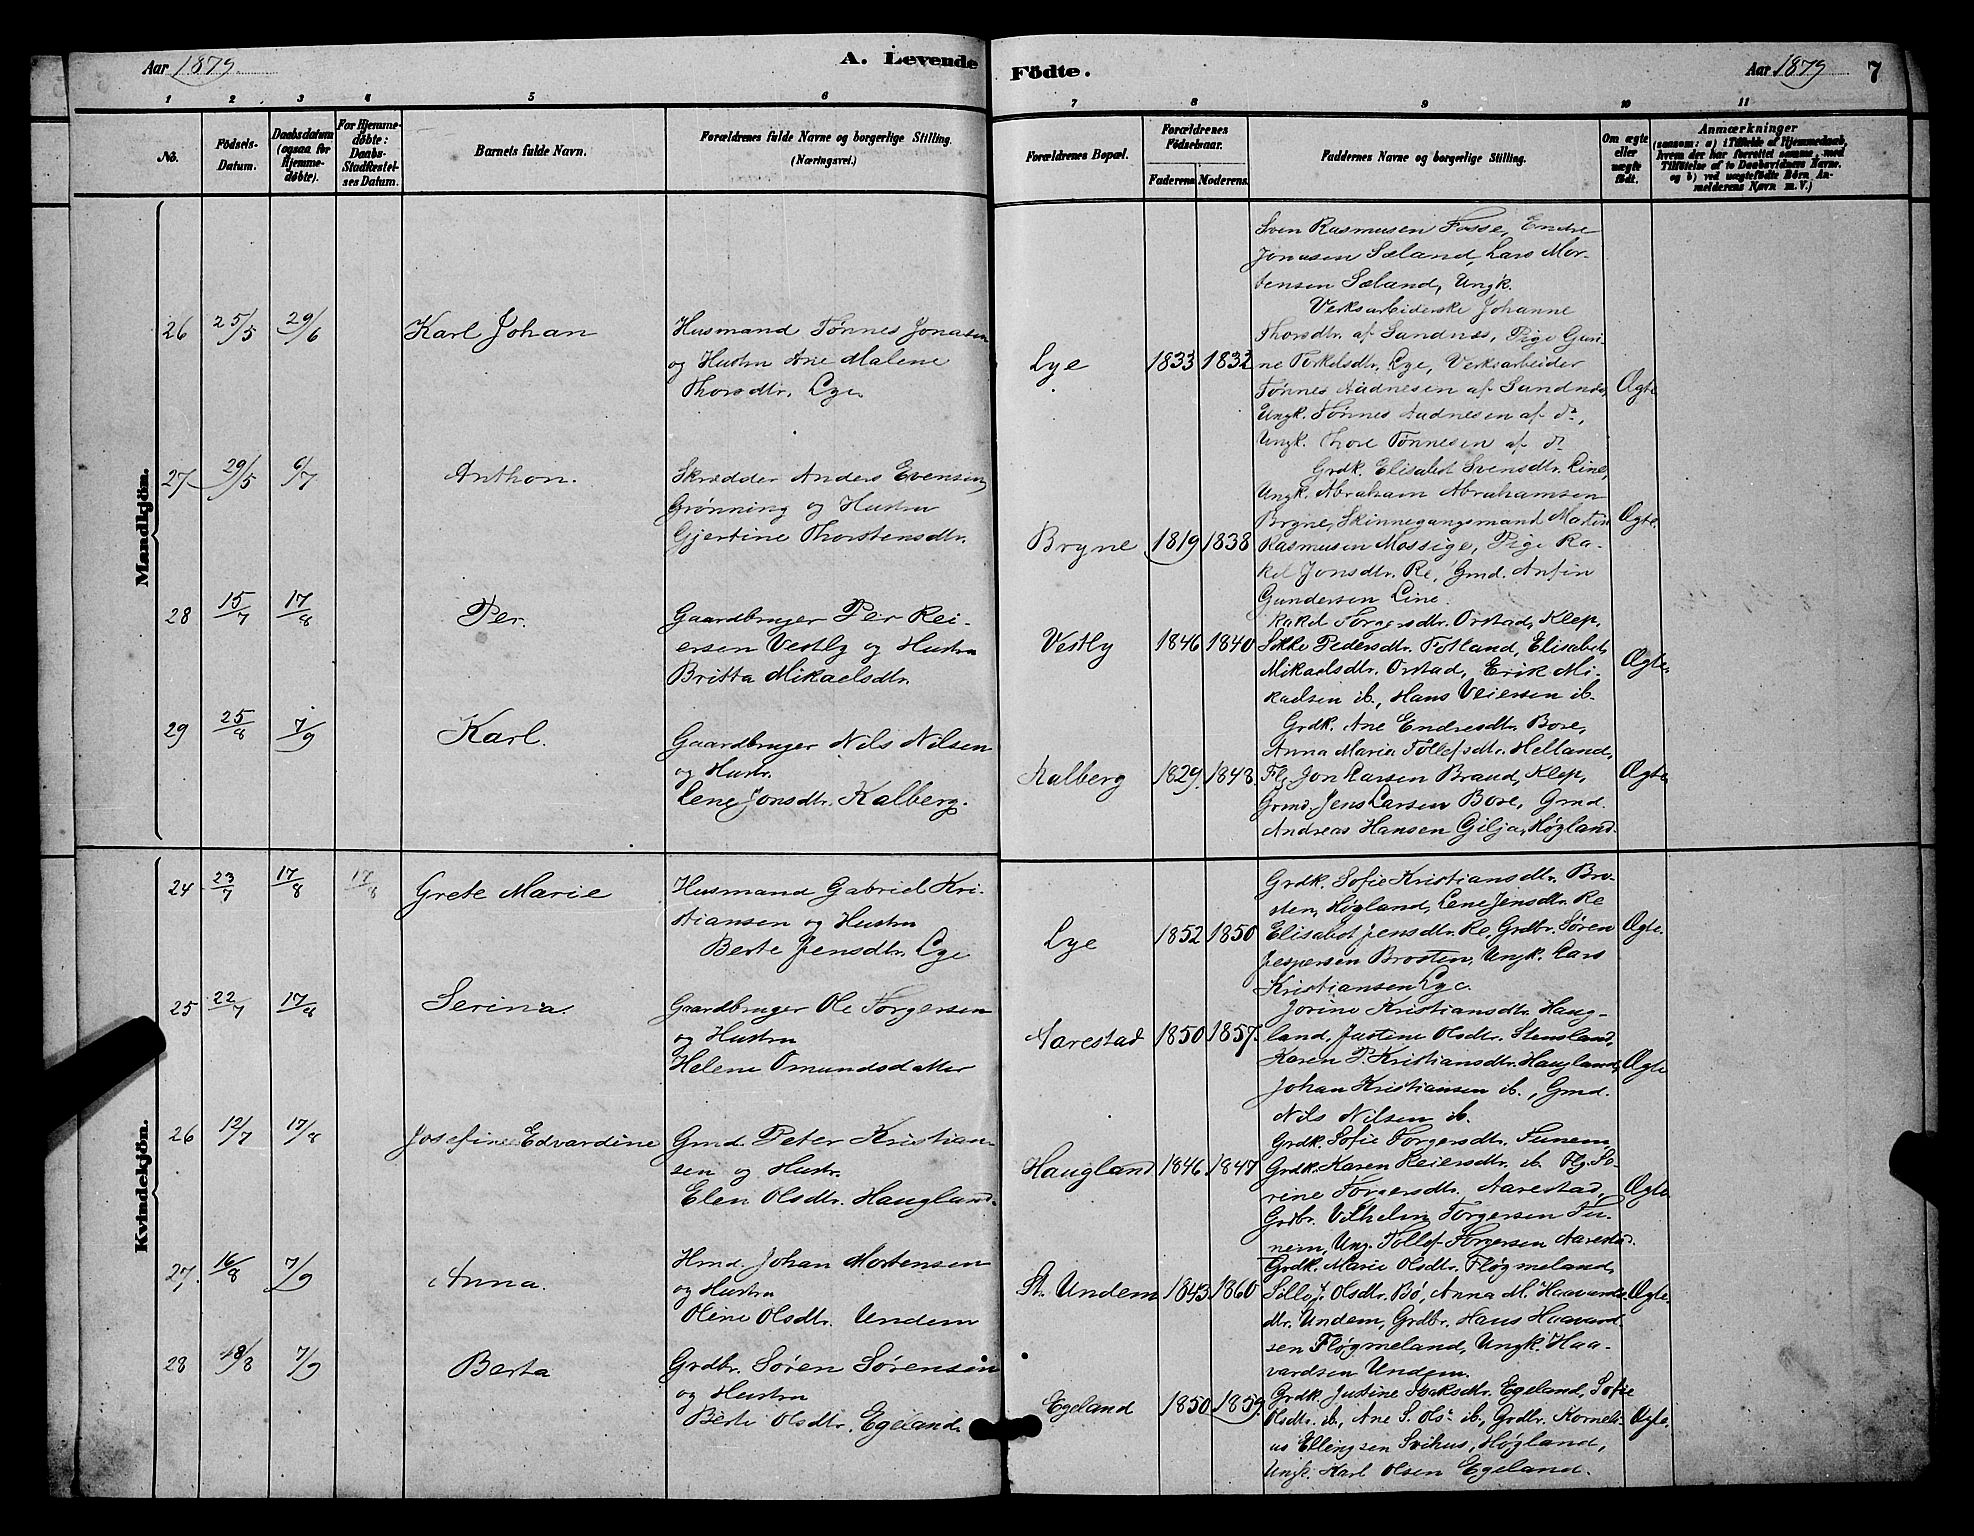 Aar 1879
A. Levende
Födte.
Aar 1879
7
1 2 3 4 5 6
7 8 9 10 11
No.
Födsels-
Datum.
Daabsdatum
(ogsaa for
Hjemme-
döbte).
For Hjemme-
döbte:
Daabs-
Stadfæstel-
ses Datum.
Barnets fulde Navn.
Forældrenes fulde Navne og borgerlige Stilling.
(Næringsvei.)
Forældrenes Bopæl.
Forældrenes
Födselsaar.
Faderens. Moderens.
Faddernes Navne og borgerlige Stilling.
Om ægte
eller
uægte
födt.
Anmærkninger
(saasom: a) i Tilfælde af Hjemmedaab,
hvem der har forrettet samme, med
Tilföielse af to Daabsvidners Navne.
og b) ved uægtefödte Börn An-
melderens Navn m. V.)
Mandkjön.
Sven Rasmusen Fosse, Endre
Jonasen Sæland, Lars Mor-
tensen Sæland, Ungk.
26 25/5 29/6 Karl Johan
Husmand Tønnes Jonasen
og Hustru Ane Malene
Thorsdtr. Lye
Lye 1833 1832
Verksarbiderske Johanne
Thorsdtr. af Sandnes, Pige Guri-
ne Terkelsdtr. Lye, Verksarbeider
Tønnes Audnesen af Sandnes,
Ungk. Tønnes Audnesen af do,
Ungk. Thore Tønnesen af do
Ægte
27 29/5 6/7 Anthon.
Skrædder Anders Evensen
Grønning og Hustru
Gjertine Thorstensdtr.
Bryne 1819 1838
Grdk. Elisabet Svensdtr. Line,
Ungk. Abraham Abrahamsen
Bryne, Skinnegangsmand Martin
Rasmusen Mossige, Pige Ra-
kel Jonsdtr. Re, Gmd. Anfin
Gundersen Line.
Ægte.
28 15/7 17/8 Per.
Gaardbruger Per Rei-
ersen Vestly og Hustru
Britta Mikaelsdtr.
Vestly 1846 1840
Rakel Torgersdtr. Orstad, Klep,
Sikke Pedersdtr. Totland, Elisabet
Mikaelsdtr. Orstad, Erik Mi-
kaelsen ib., Hans Veiersen ib.
Ægte.
29 25/8 7/9 Karl.
Gaardbruger Nils Nilsen
og Hustr.
Lene Jonsdtr. Kalberg.
Kalberg 1829. 1843.
Grdk. Ane Endresdtr. Bore,
Anna Maria Tollefsdtr. Helland,
Fl. Jon Larsen Braud, Klep,
Grmd. Jens Larsen Bore, Gmd.
Andreas Hansen Gilja, Høgland.
Ægte
Kvindekjön.
24 23/7 17/8 17/8 Grete Marie
Husmand Gabriel Kri-
stiansen og Hustru
Berte Jensdtr. Lye
Lye 1852 1850
Grdk. Sofie Kristiansdtr. Bro-
sten, Høgland, Lene Jensdtr. Re
Elisabet Jensdtr. Re, Grdbr. Søren
Jespersen Brosten, Ungk. Lars
Kristiansen Lye.
Ægte.
25 22/7 17/8 Serina
Gaardbruger Ole Torgersen
og Hustru
Helene Omundsdatter
Aarestad 1850 1857.
Jorine Kristiansdtr. Haug-
land, Justine Olsdtr. Stensland,
Karen P. Kristiansdtr. Haugland,
Johan Kristiansen ib., Gmd.
Nils Nilsen ib.
Ægte
26 12/7 17/8 Josefine Edvardine
Gmd. Peter Kristian-
sen og Hustr.
Elen Olsdtr. Haugland.
Haugland 1846 1847
Grdk. Sofie Torgersdtr. Tunem,
Grdk. Karen Reiersdtr. ib. Pig. Se-
rine Torgersdtr. Aarestad,
Grdbr. Vilhelm Torgersen Tu-
nem, Ung. Tollef Torgersen Aarestad.
Ægte
27. 16/8 7/9 Anna.
Hmd. Johan Mortensen
og Hustru
Oline Olsdtr. Undem
St. Undem 1843 1860
Grdk. Marie Olsdtr. Fløgmeland,
Sille J. Olsdtr. Bø, Anna M. Haavards-
dtr. Undem, Grdbr. Hans Haavard-
sen Fløgmeland, Ungk. Haa-
vardsen Undem.
Ægte.
28 18/8 7/9 Berta
Grdbr. Søren Sørensen
og Hustru
Berte Olsdtr. Egeland.
Egeland 1850 1859.
Grdk. Justine Isaksdtr. Egeland, Sofie
Olsdtr. ib., Ane S. Ols. ib., Grdbr. Korneli-
us Ellingsen Svihus, Høgland,
Ungk. Karl Olsen Egeland.
Ægte.